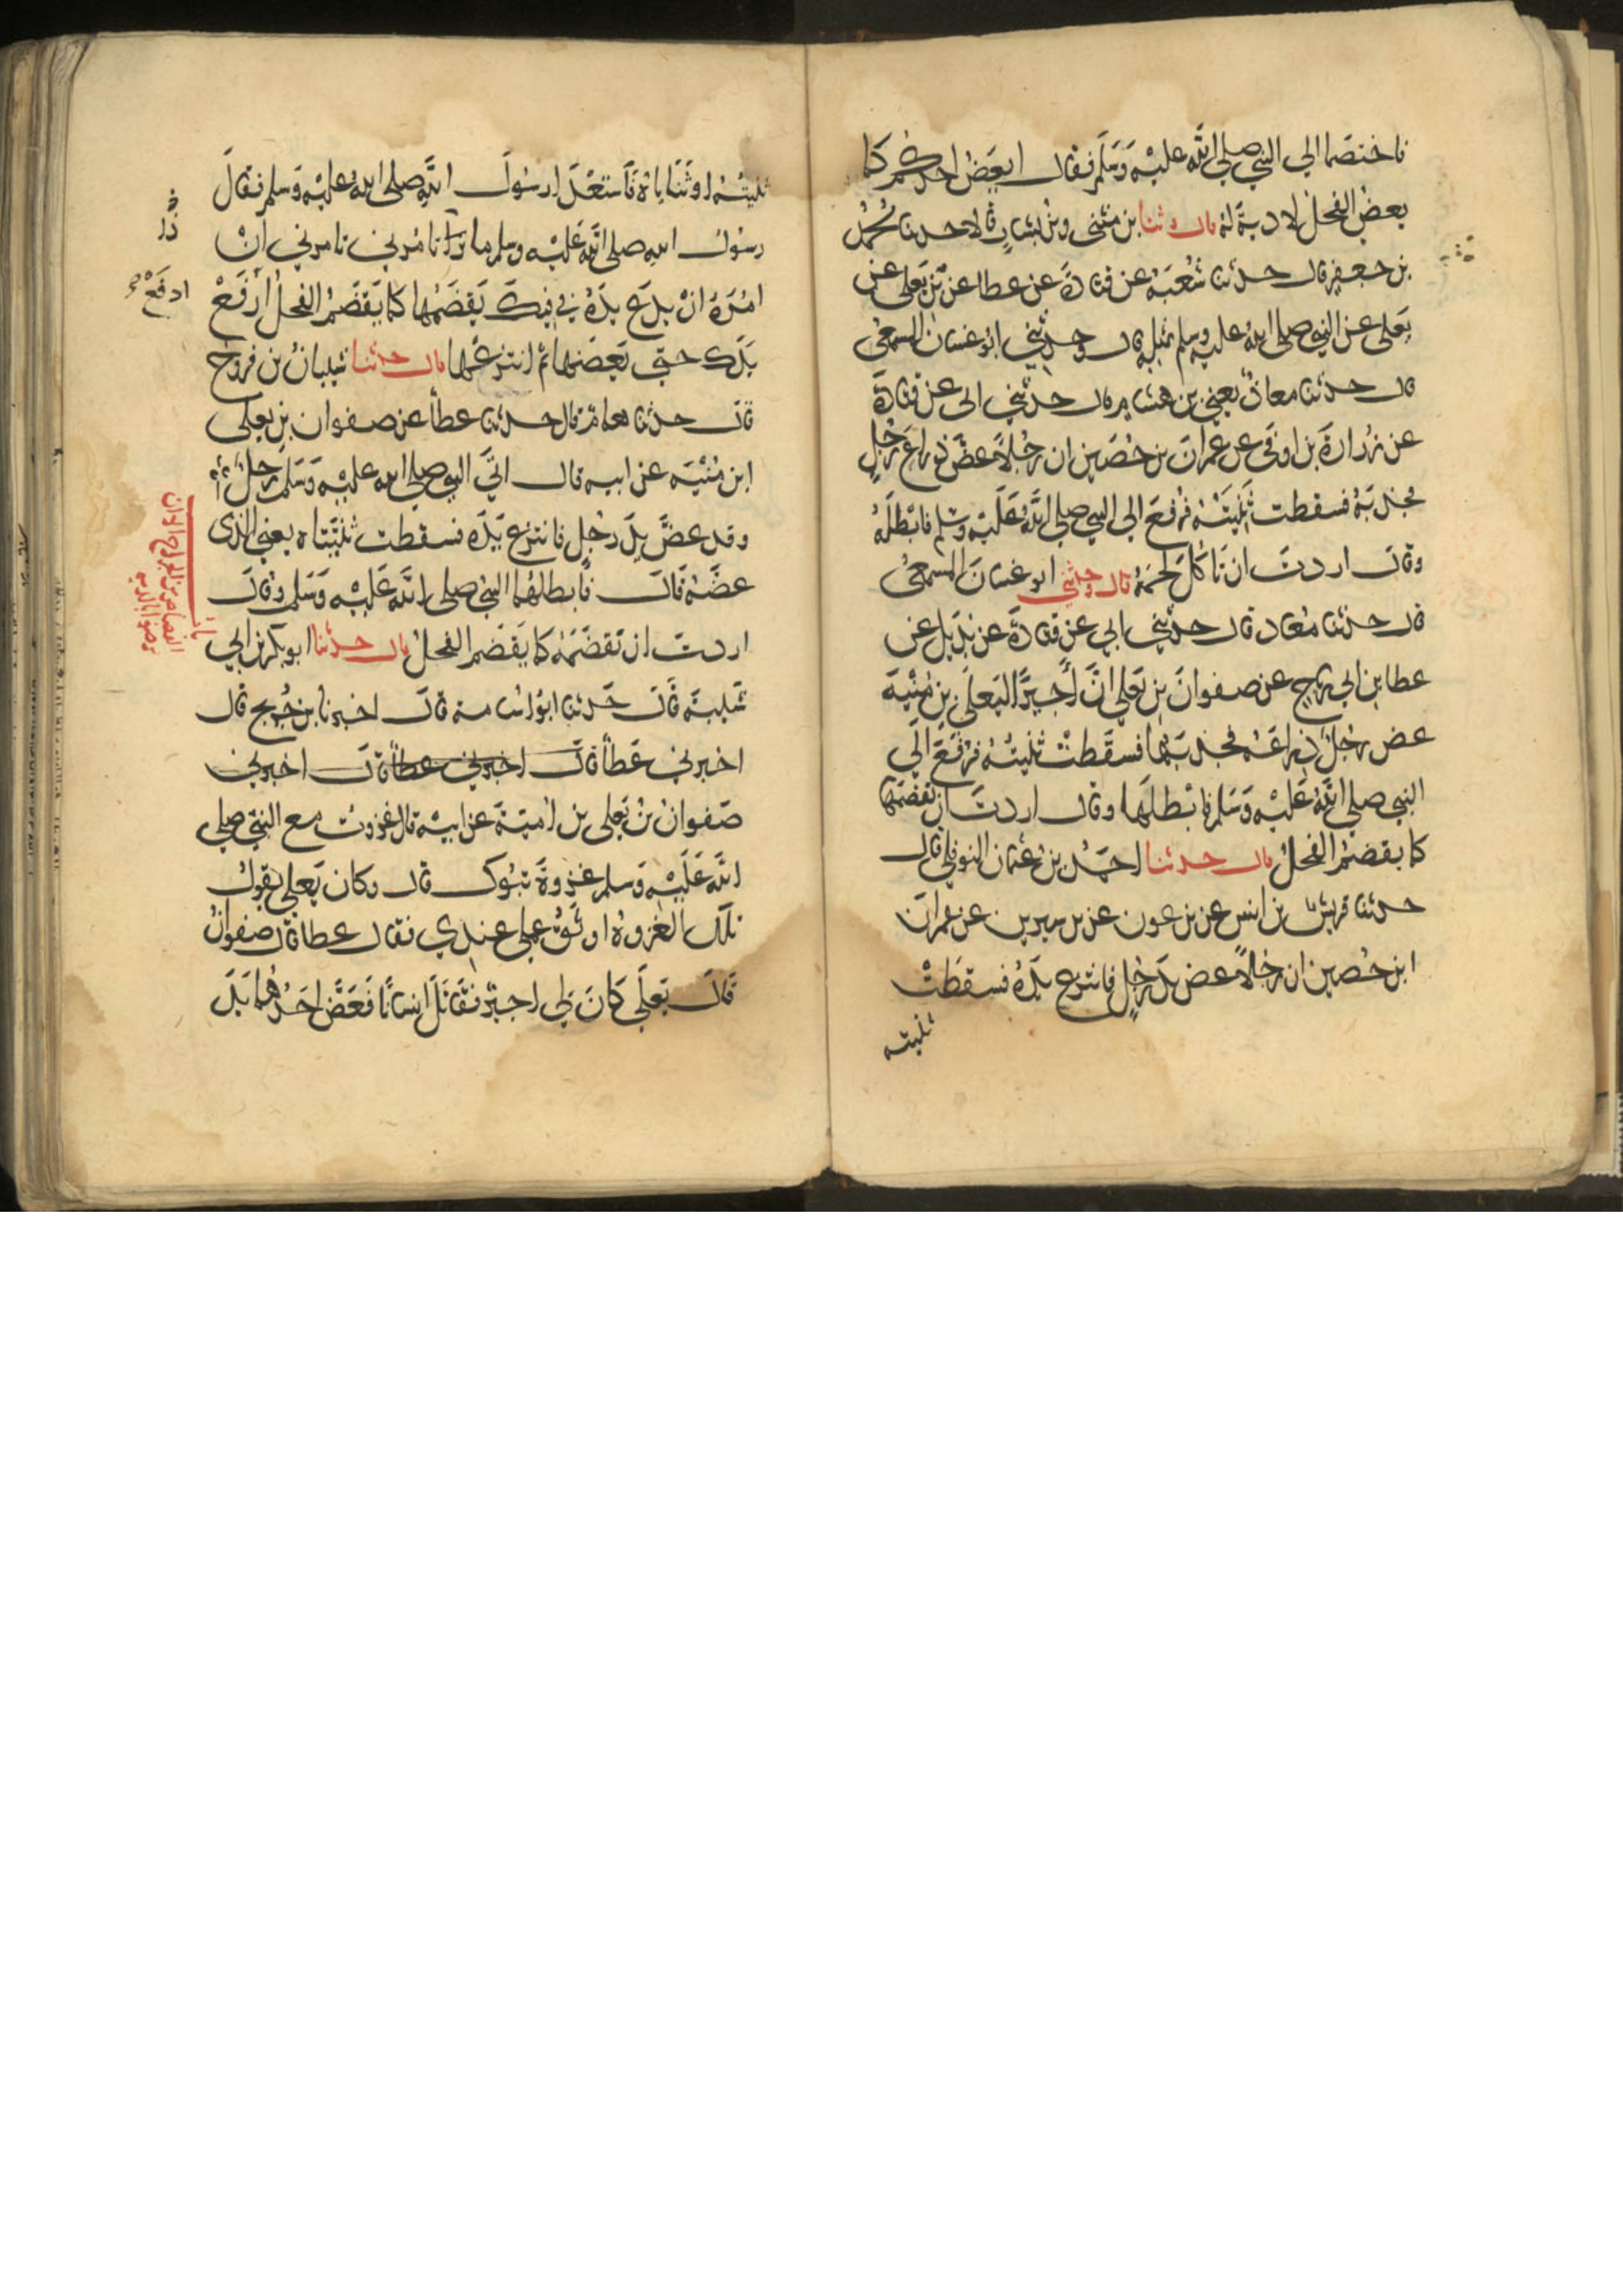 فاختصما الى النبي صلى الله عليه وسلم فقال ايعض احدكم كما
يعض الفحل لا دية له قال وثنا بن مثنى وبن بشار قالا حدثنا محمد
بن جعفر قال حدثنا شعبة عن قتادة عن عطا عن بن يعلى عن
يعلى عن النبي صلى الله عليه وسلم بمثله قال وحدثني ابو غسان المسمعي
قال حدثنا معاذ يعني بن هشام قال حدثني ابي عن قتادة
عن زرارة بن اوفى عن عمران بن حصين ان رجلا عض ذراع رجل
فجذبه فسقطت ثنيته فرفع الى النبي صلى الله عليه وسلم فابطله
وقال اردت ان تاكل لحمه قال وحدثني ابو غسان المسمعي
قال حدثنا معاذ قال حدثني ابي عن قتادة عن بديل عن
عطا بن ابي رباح عن صفوان بن يعلى ان اجيرا ليعلى بن منية
عض رجل ذراعه فجذبها فسقطت ثنيته فرفع الى
النبي صلى الله عليه وسلم فابطلها وقال اردت ان تقضمها
كما يقضم الفحل قال حدثنا احمد بن عثمان النوفلي قال
حدثنا قريش بن انس عن بن عون عن بن سيرين عن عمران
ابن حصين ان رجلا عض يد رجل فانتزع يده فسقطت
ثنيته
ثنيته او ثناياه فاستعدا رسول الله صلى الله عليه وسلم فقال
رسول الله صلى الله عليه وسلم ما تامرني تامرني ان
امره ان يدع يده في فيك يقضمها كما يقضم الفحل ارفع
يدك حتى يعضها ثم انتزعها قال حدثنا شيبان بن فروخ
قال حدثنا همام قال حدثنا عطا عن صفوان بن يعلى
ابن منية عن ابيه قال اتى النبي صلى الله عليه وسلم رجل
وقد عض يد رجل فانتزع يده فسقطت ثنيتاه يعني الذي
عضه قال فابطلهما النبي صلى الله عليه وسلم وقال
اردت ان تقضمه كما يقضم الفحل قال حدثنا ابو بكر بن ابي
شيبة قال حدثنا ابو اسامة قال اخبرنا بن جريج قال
اخبرني عطا قال اخبرني عطا قال اخبرني
صفوان بن يعلى بن امية عن ابيه قال غزوت مع النبي صلى
الله عليه وسلم غزوة تبوك قال وكان يعلى يقول
تلك الغزوة اوثق عملي عندي فقال عطا قال صفوان
قال يعلى كان لي اجير فقاتل انسانا فعض احدهما يد
ادفع
باب
القصاص من الجراح الا ان
يرضوا بالدية